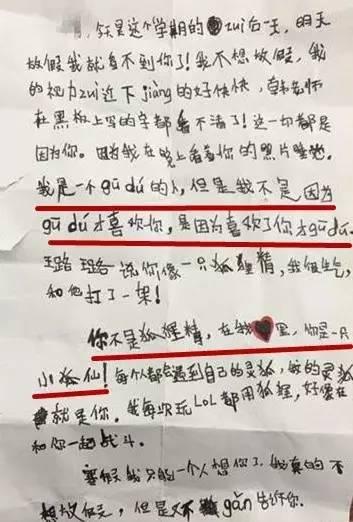 ，今天是这个学期的zui后一天，明天
放假我就看不到你了！我不想放假，我
的视力zui近下jiàng的好快快，韩老师
在黑板上写的字都看不清了！这一切都是
因为你。因为我在晚上看着你的照片睡着。
我是一个gū dú的人，但是我不是因为
gū dú才喜欢你，是因为喜欢了你才gū dú。
王路 路 说你像一只狐狸精，我很生气，
和他打了一架！
你不是狐狸精，在我里，你是一只
小狐仙！每个人都会遇到自己的灵狐，我的灵狐
就是你。我每次玩LoL都用狐狸，好像在
和你一起战斗。
寒假我只能一个人想你了，我真的不
想放假，但是又不gǎn告诉你。